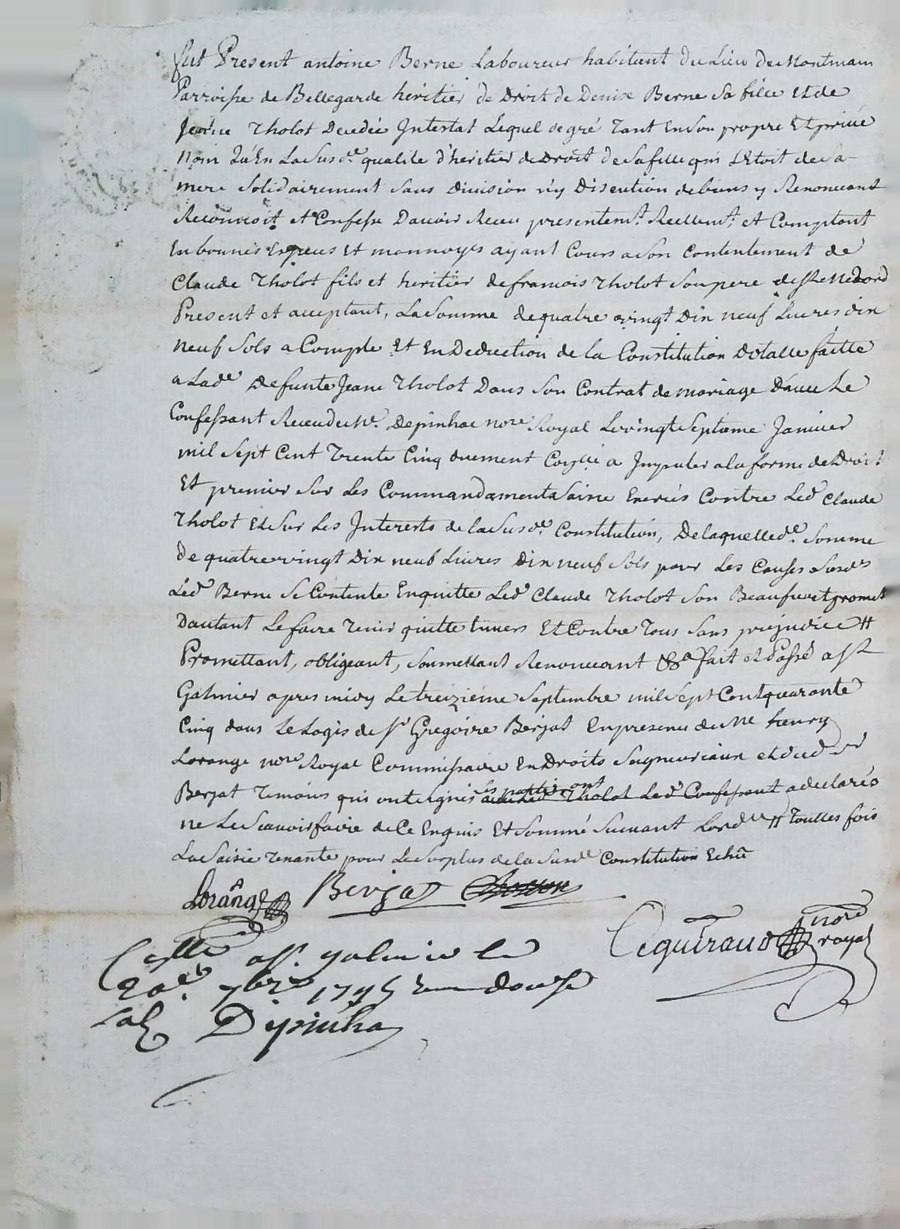 fut Present antoine Berne Laboureur habitant du Lieu de Montmain
Parroisse de Bellegarde heritier de Droit de Denise Berne sa fille et de
Jeane Tholot Decedée Intestat Lequel de gré Tant En son propre Et privé
nom Qu'En La Susde qualité d'heritier de Droit de sa fille qui L'Etoit de Sa
mere Solidairement Sans Division ny Discution de biens y Renonceant
Reconnoit et Confesse D'avoir Receu presentemt Reellemt et Comptant
En bonnes Especes Et monnoyes ayant Cours a Son Contentement de
Claude Tholot fils et heritier de francois Tholot Son pere de St Medard
Present et acceptant, La Somme de quatre vingt Dix neuf Livres dix
neuf Sols a Compte Et En Deduction de la Constitution Dotalle faitte
a Lade Defunte Jeane Tholot Dans Son Contrat de mariage D'avec Le
Confessant Receu du Me Depinhac nore Royal Le vingt Septieme Janvier
mil Sept Cent Trente Cinq a Imputer a la forme de Droit
Et premier Sur Les Commandament Saisie Contre Led Claude
Tholot Et Sur Les Interests de la Susde Constitution, De laquelle de Somme
De quatre vingt Dix neuf Livres Dix neuf Sols pour Les Causes Susdes
Led Berne Se Contente En quitte Led Claude Tholot Son Beaufrere et promet
D'autant Le faire Tenir quitte Envers Et Contre Tous Sans prejudice
Promettant, obligeant, Soumettant Renonceant &a fait et Passé a St
Galmier apres midy Le treizieme Septembre mil Sept Cent quarante
Cinq dans Le Logis de Sr Gregoire Berjat En presence de Me henry
Lorange nore Royal Commissaire En Droits Seigneuriaux et dud Sr
Berjat Temoins qui ont Signés Tholot Led Confessant a declarés
ne Le Scavoir faire de Ce Enquis Et Sommé Suivant Lordce Touttes fois
La Saisie Tenante pour Le Surplus de la Susde Constitution Echue
Lorange Berjat
Ceguiraud nore
royal
a St galmie le
20e 7bre 1745
Depinhac